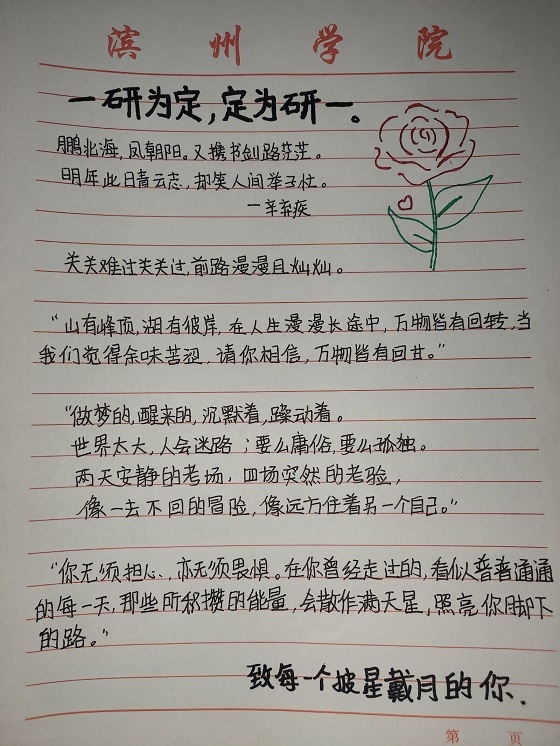 滨州学院
一研为定,定为研一。
鹏北海,凤朝阳。又携书剑路茫茫。
明年此日青云志,却笑人间举子忙。
一辛弃疾
关关难过关关过,前路漫漫且灿灿。
“山有峰顶,湖有彼岸,在人生漫漫长途中,万物皆有回转,当
我们觉得余味苦涩,请你相信,万物皆有回甘。”
“做梦的,醒来的,沉默着,躁动着。
世界太大,人会迷路;要么庸俗,要么孤独。
两天安静的考场,四场突然的考验,
像一去不回的冒险,像远方住着另一个自己。”
“你无须担心,亦无须畏惧。在你曾经走过的,看似普普通通
的每一天,那些所积攒的能量,会散作满天星,照亮你脚下
的路。”
致每一个披星戴月的你.
第 页